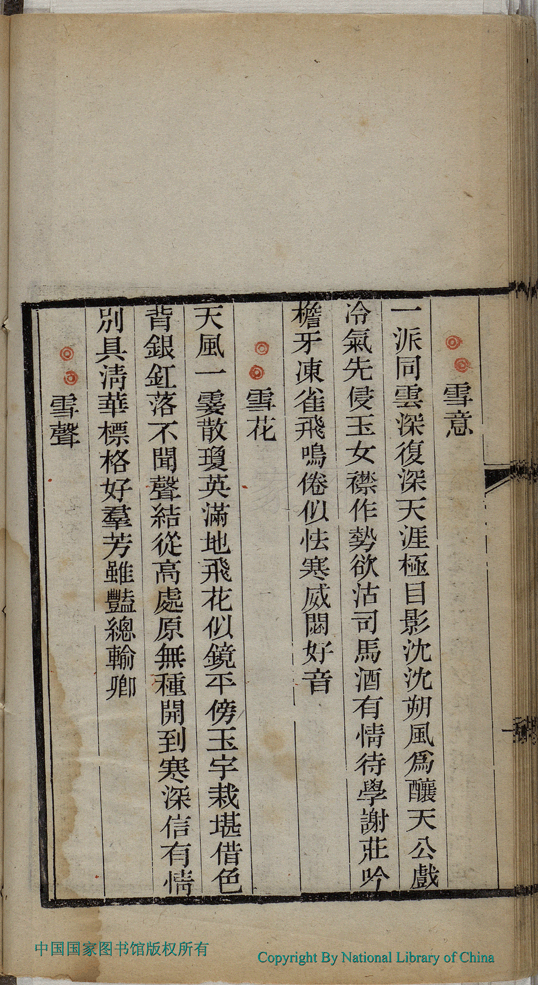 雪意
一派同雲深復深天涯極目影沈沈朔風爲釀天公戲
冷氣先侵玉女襟作勢欲沽司馬酒有情待學謝莊吟
檐牙凍雀飛鳴倦似怯寒威閟好音
雪花
天風一霎散瓊英滿地飛花似鏡平傍玉宇栽堪借色
背銀釭落不聞聲結從高處原無種開到寒深信有情
別具清華標格好羣芳雖豔總輸卿
雪聲
中国国家图书馆版权所有
Copyright By National Library of China